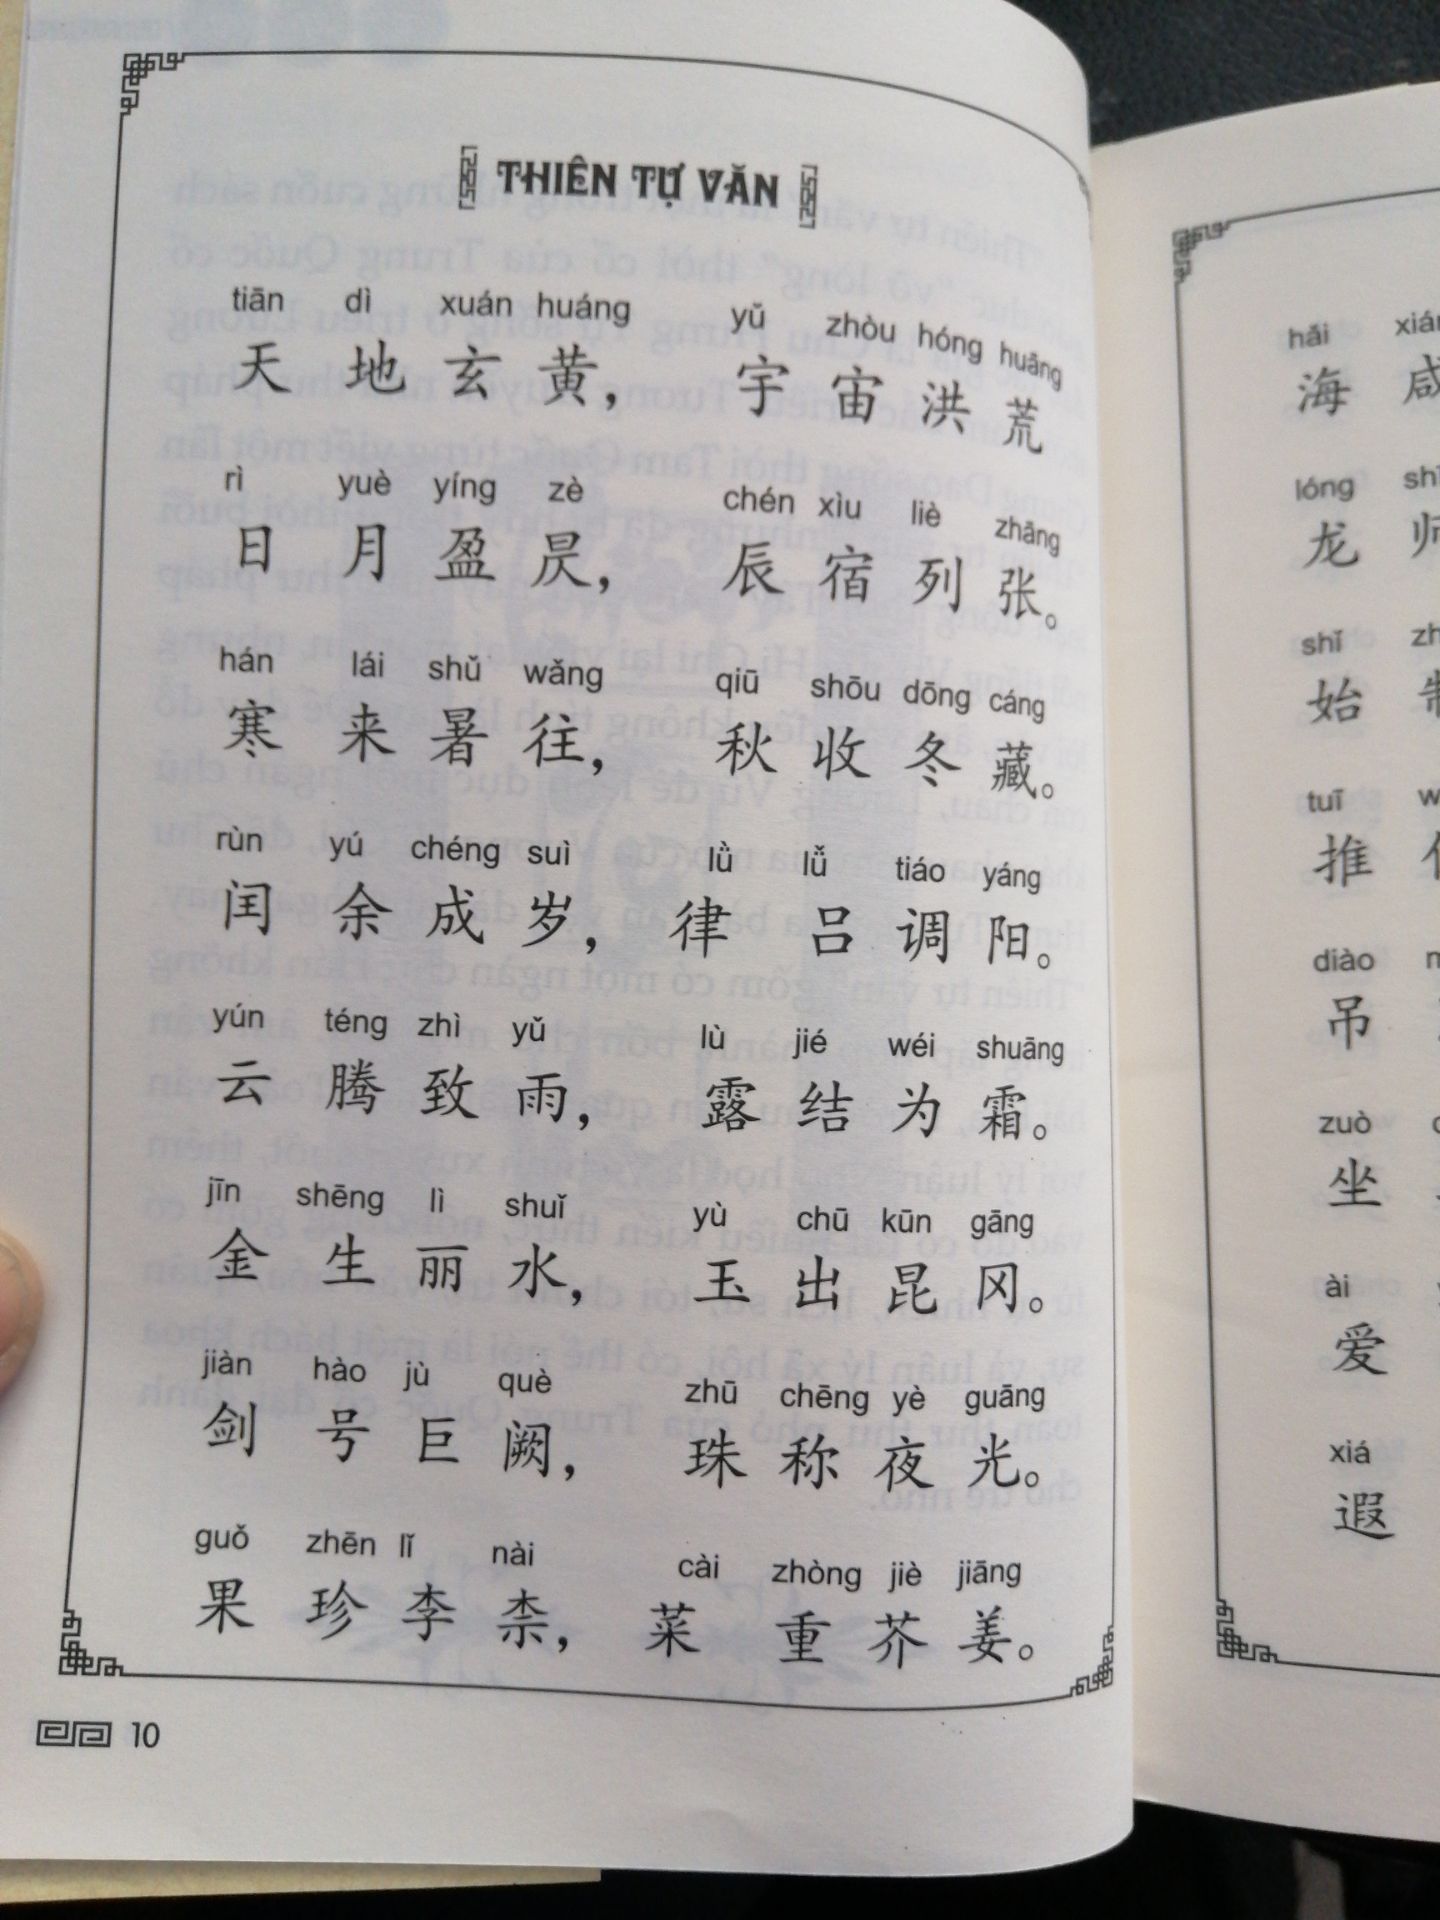 THIÊN TỰ VĂN
tiān dì xuán huáng yǔ zhòu hóng huāng
天地玄黄，宇宙洪荒
rì yuè yíng zè chén xìu liè zhāng
日月盈昃，辰宿列张。
hán lái shǔ wǎng qiū shōu dōng cáng
寒来暑往，秋收冬藏。
rùn yú chéng suì lǜ lǚ tiáo yáng
闰余成岁，律吕调阳。
yún téng zhì yǔ lù jié wéi shuāng
云腾致雨，露结为霜。
jīn shēng lì shuǐ yù chū kūn gāng
金生丽水，玉出昆冈。
jiàn hào jù què zhū chēng yè guāng
剑号巨阙，珠称夜光。
guǒ zhēn lǐ nài cài zhòng jiè jiāng
果珍李柰，菜重芥姜。
10
hǎi
海咸
lóng
龙师
shǐ
始制
tuī
推
diào
吊
zuò
坐
ài
爱
xiá
遐